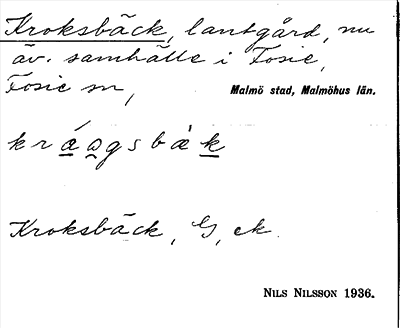 Kroksbäck, lantgård, nu
äv. samhälle i Fosie,
Fosie sn,
Malmö stad, Malmöhus län.
Kroksbäck, G, ek.
NILS NILSSON 1936.